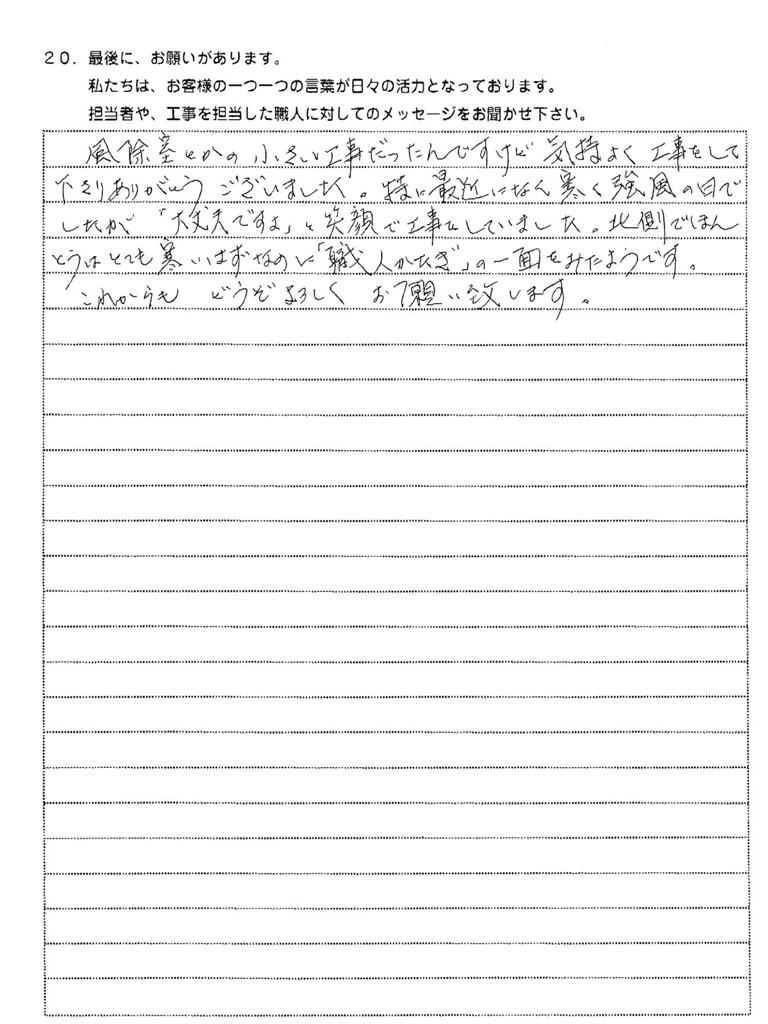 20. 最後に、お願いがあります。
私たちは、お客様の一つ一つの言葉が日々の活力となっております。
担当者や、工事を担当した職人に対してのメッセージをお聞かせ下さい。
風除室とかの小さい工事だったんですけど気持よく工事をして
下さりありがとうございました。特に最近になく寒く強風の日で
したが「大丈夫ですよ」と笑顔で工事をしていました。北側でほん
とうはとても寒いはずなのに「職人かたぎ」の一面をみたようです。
これからも どうぞよろしく お願い致します。